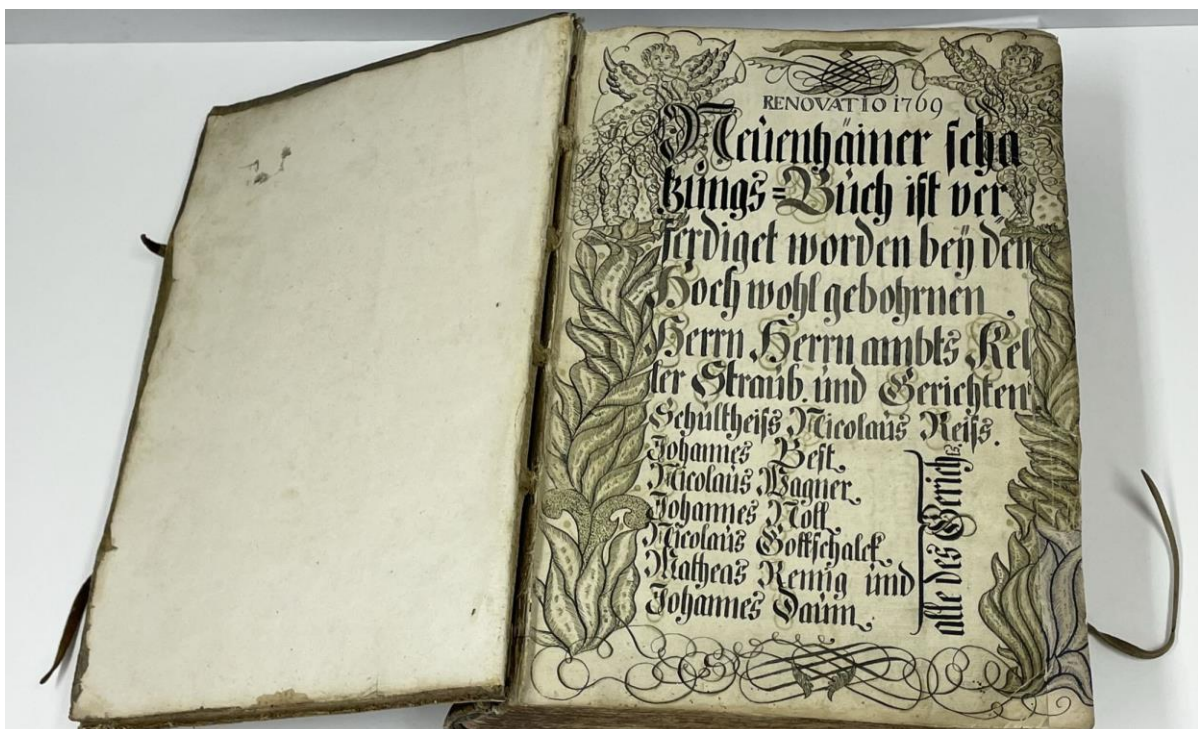 RENOVATIO 1769
Neüenhäiner scha
tzüngs=Büch ist ver
ferdiget worden beÿ den
Hoch wohl gebohrnen
Herrn Herrn ambts Kel
ler Straüb. und Gerichten
Schültheiss Nicolaüs Reiss.
Johannes Best
Nicolaüs Wagner
Johannes Nott
Nicolaüs Gottschalck
Matheas Remig und
Johannes Daüm
alle des Gerichts